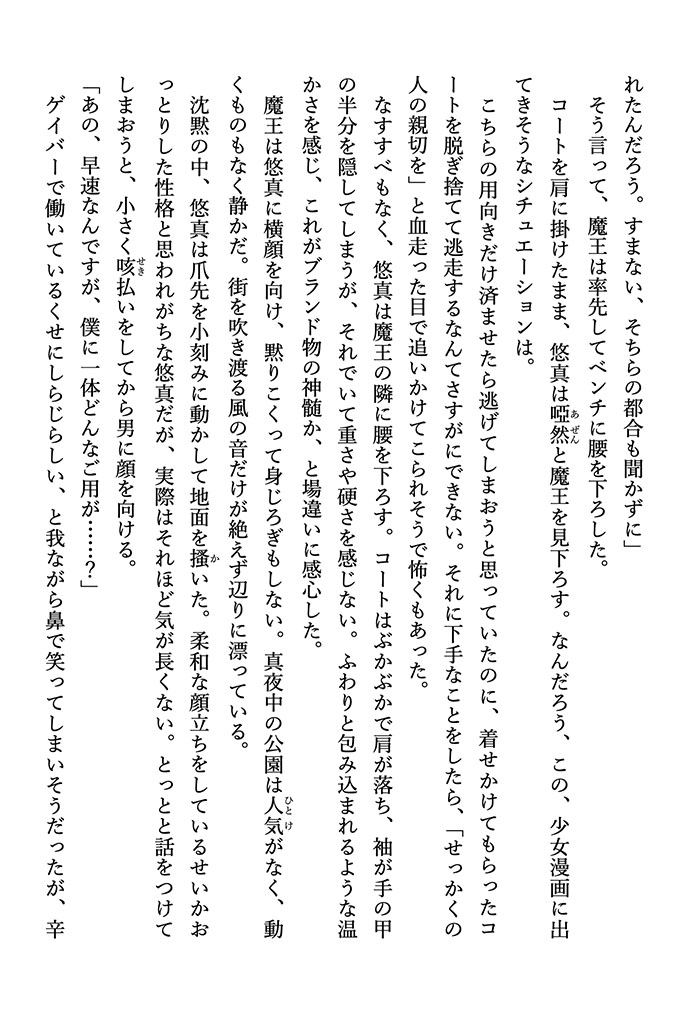 れたんだろう。すまない、そちらの都合も聞かずに」
そう言って、魔王は率先してベンチに腰を下ろした。
コートを肩に掛けたまま、悠真は啞然と魔王を見下ろす。なんだろう、この、少女漫画に出
てきそうなシチュエーションは。
こちらの用向きだけ済ませたら逃げてしまおうと思っていたのに、着せかけてもらったコ
ートを脱ぎ捨てて逃走するなんてさすがにできない。それに下手なことをしたら、「せっかくの
人の親切を」と血走った目で追いかけてこられそうで怖くもあった。
なすすべもなく、悠真は魔王の隣に腰を下ろす。コートはぶかぶかで肩が落ち、袖が手の甲
の半分を隠してしまうが、それでいて重さや硬さを感じない。ふわりと包み込まれるような温
かさを感じ、これがブランド物の神髄か、と場違いに感心した。
魔王は悠真に横顔を向け、黙りこくって身じろぎもしない。真夜中の公園は人気がなく、動
くものもなく静かだ。街を吹き渡る風の音だけが絶えず辺りに漂っている。
沈黙の中、悠真は爪先を小刻みに動かして地面を掻いた。柔和な顔立ちをしているせいかお
っとりした性格と思われがちな悠真だが、実際はそれほど気が長くない。とっとと話をつけて
しまおうと、小さく咳払いをしてから男に顔を向ける。
「あの、早速なんですが、僕に一体どんなご用が……？」
ゲイバーで働いているくせにしらじらしい、と我ながら鼻で笑ってしまいそうだったが、辛